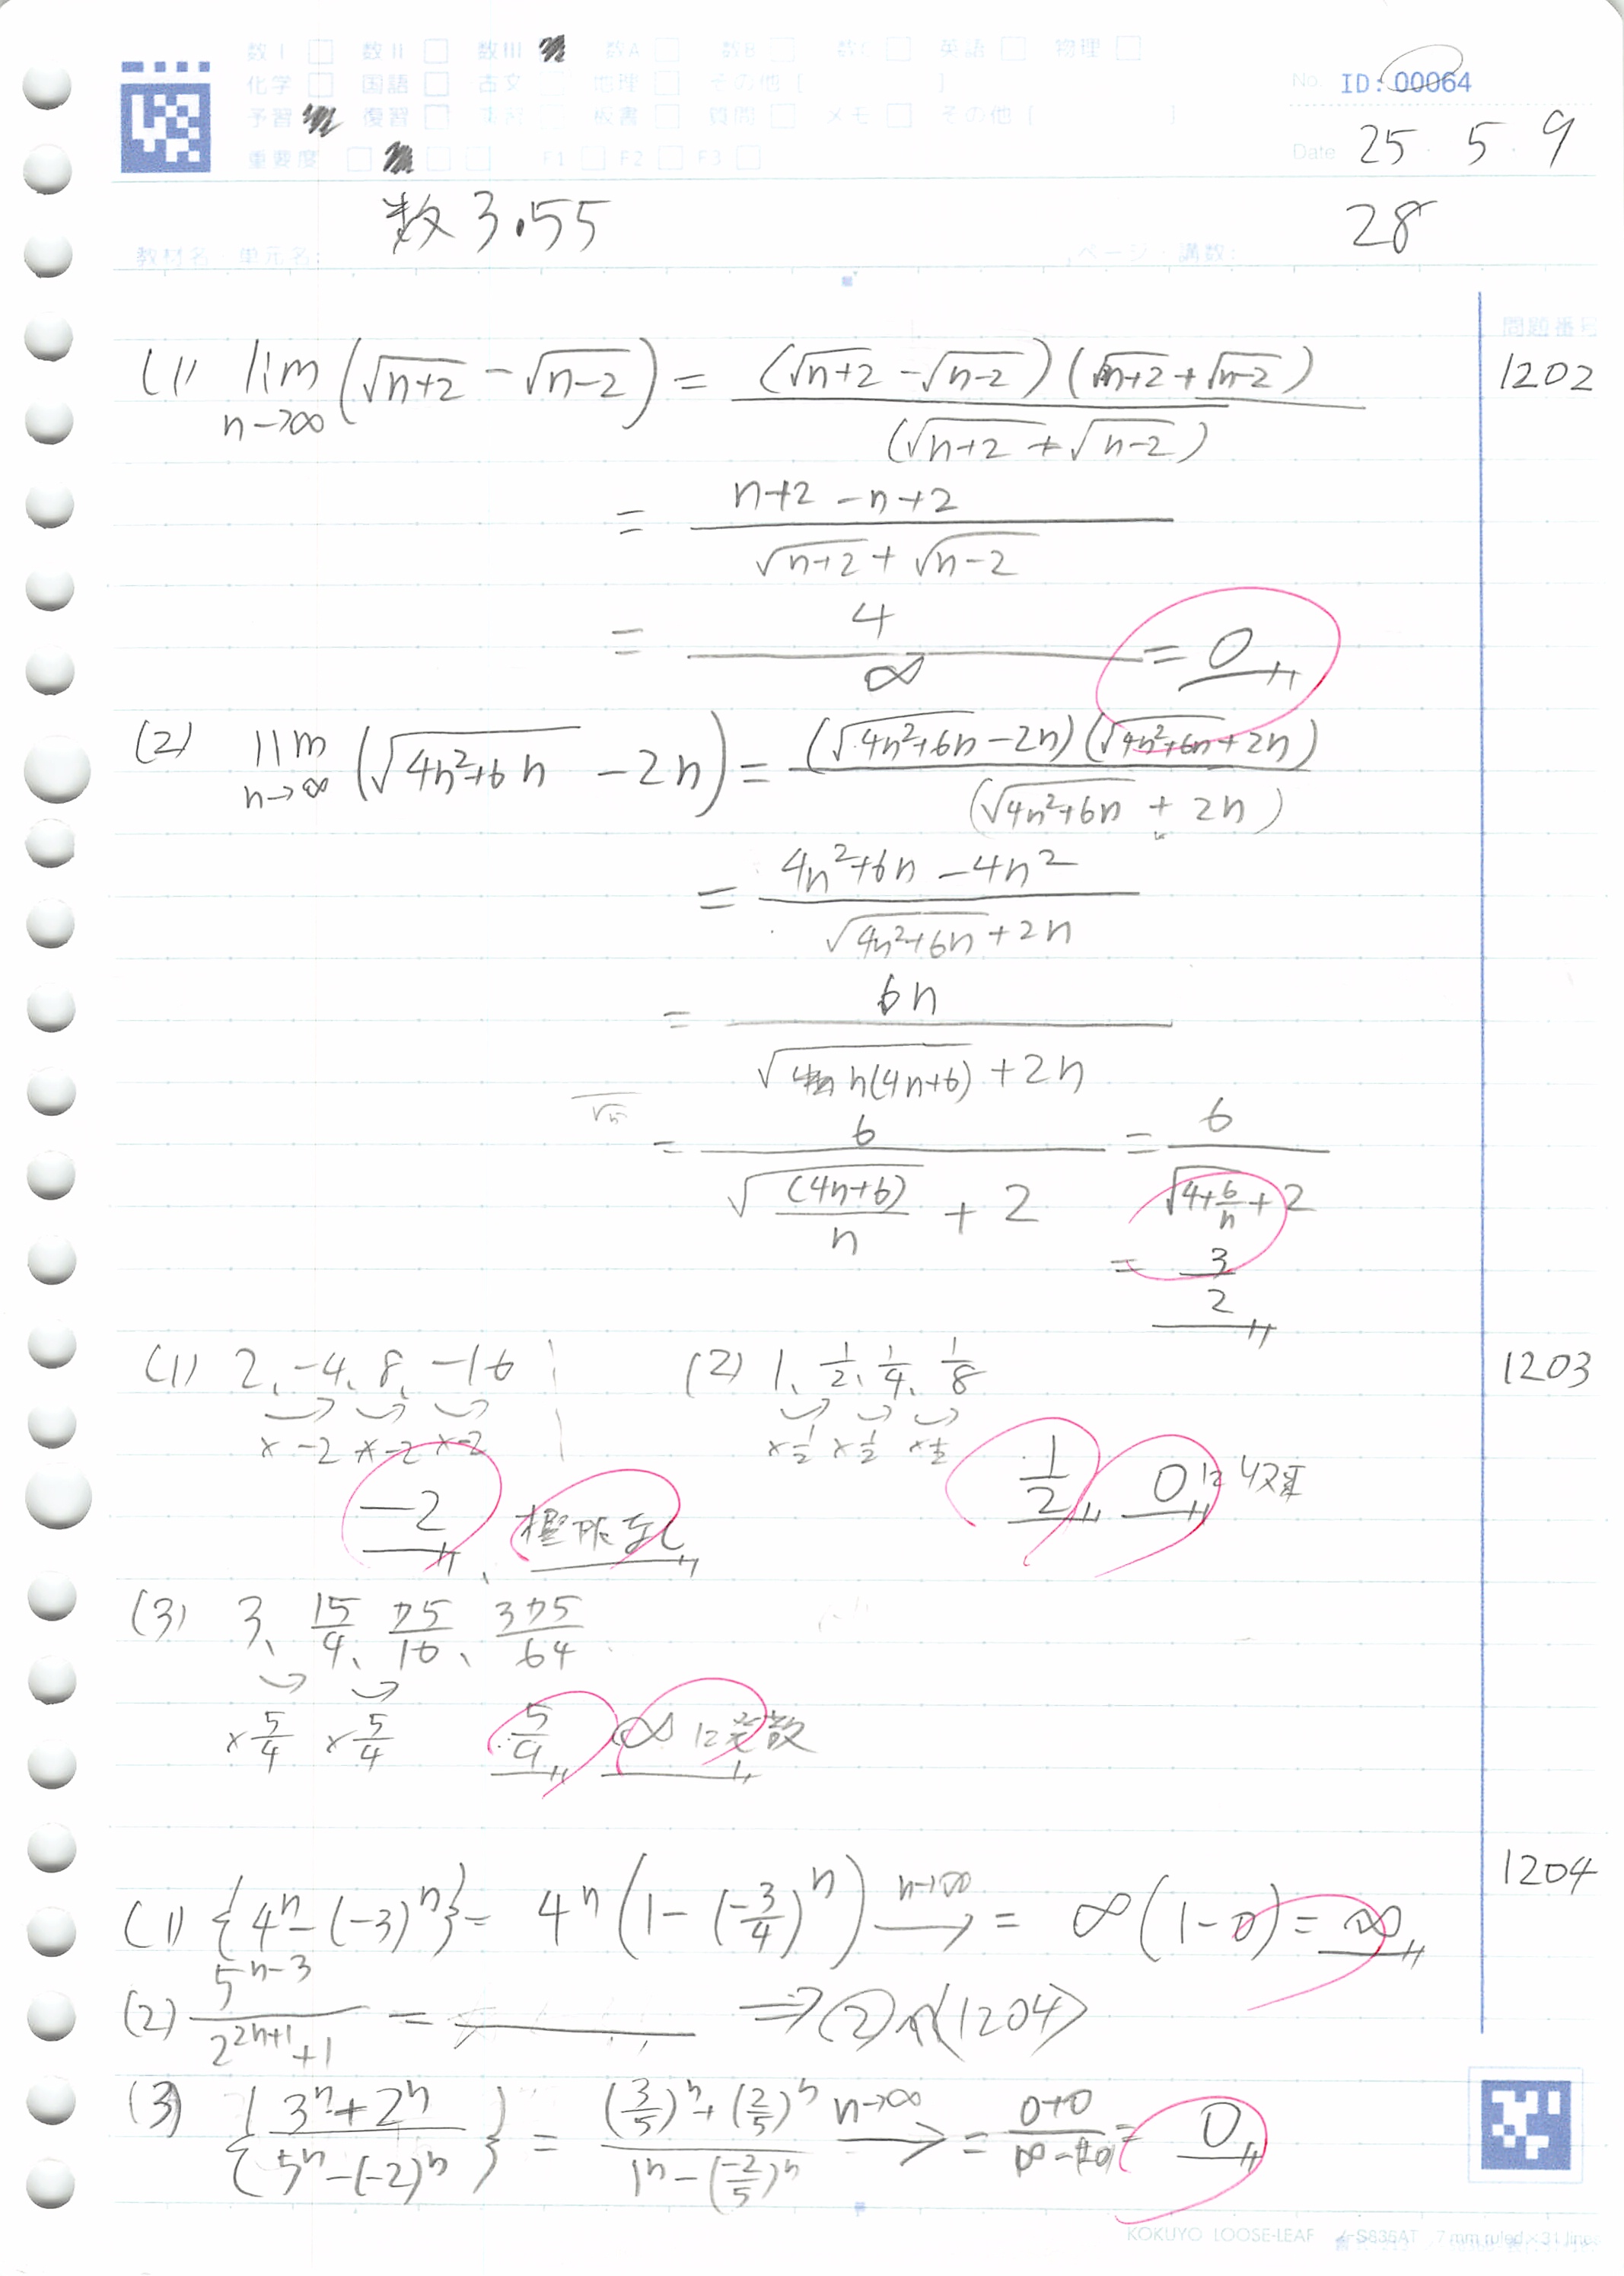 数Ⅰ □ 数Ⅱ □ 数Ⅲ 数A □ 数B □ 数C □ 英語 □ 物理 □
化学 □ 国語 □ 古文 □ 地理 □ その他 [ ]
予習 復習 □ 板書 □ 質問 □ メモ □ その他 [ ]
重要度 □ □ □ F1 □ F2 □ F3 □
No. ID:00064
Date 25 . 5 . 9
数3.55
28
教材名・単元名: ページ・講数:
問題番号
1202
(1) lim_{n→∞} (√(n+2) - √(n-2)) = (√(n+2) - √(n-2))(√(n+2) + √(n-2)) / (√(n+2) + √(n-2))
= (n+2-n+2) / (√(n+2) + √(n-2))
= 4/∞ = 0
(2) lim_{n→∞} (√(4n²+6n) - 2n) = (√(4n²+6n) - 2n)(√(4n²+6n) + 2n) / (√(4n²+6n) + 2n)
= (4n²+6n-4n²) / (√(4n²+6n) + 2n)
= 6n / (√(n(4n+6)) + 2n)
= 6 / (√((4n+6)/n) + 2) = 6 / (√(4+6/n) + 2)
= 3/2
1203
(1) 2、-4、8、-16
×-2 ×-2 ×-2
-2、極限なし
(2) 1、1/2、1/4、1/8
×1/2 ×1/2 ×1/2
1/2 0に収束
(3) 3、15/4、75/16、375/64
×5/4 ×5/4
5/4 ∞に発散
1204
(1) {4ⁿ-(-3)ⁿ} = 4ⁿ(1-(-3/4)ⁿ) n→∞ → = ∞(1-0) = ∞
(2) 5^{n-3} / (2^{2n+1}+1) = ⇒(2)へ〈1204〉
(3) {(3ⁿ+2ⁿ) / (5ⁿ-(-2)ⁿ)} = ((3/5)ⁿ+(2/5)ⁿ) / (1ⁿ-(-2/5)ⁿ) n→∞ → = 0+0 / = 0
KOKUYO LOOSE-LEAF ノ-S836AT 7 mm ruled×31 lines